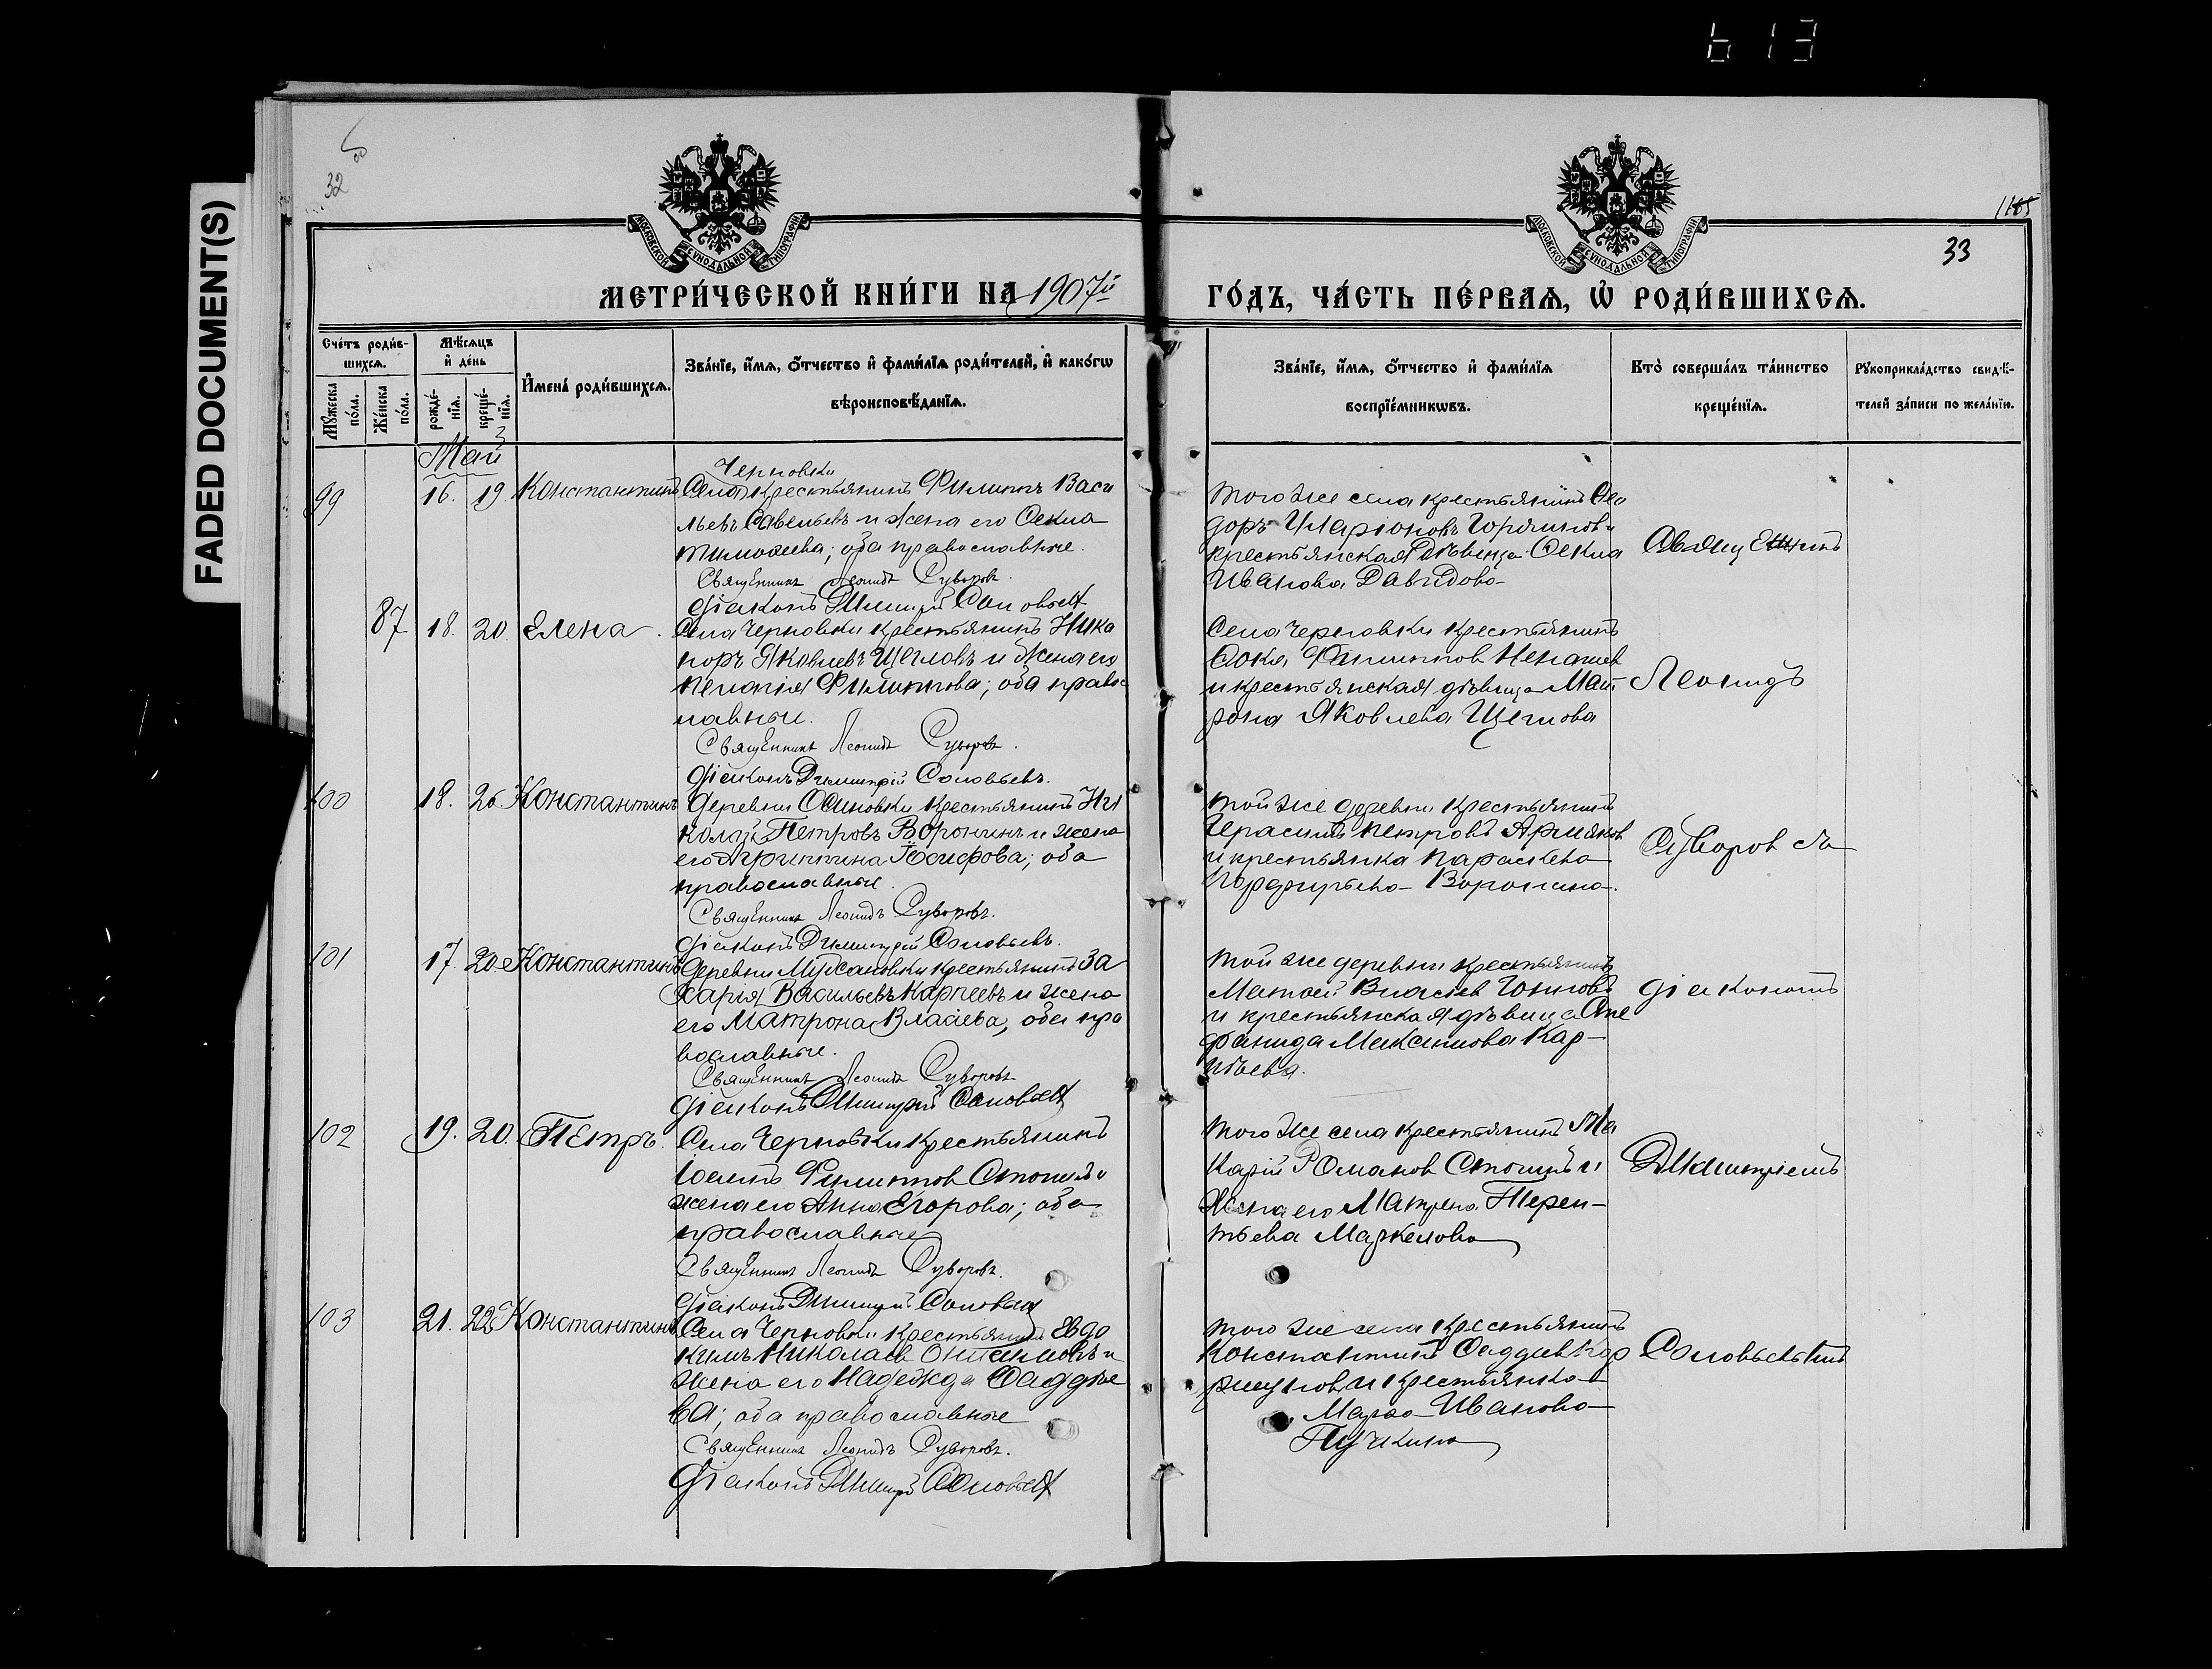 613
FADED DOCUMENT(S)
32
1165
33
МОСКОВСКОЙ СУНОДАЛЬНОЙ ТИПОГРАФІИ
МОСКОВСКОЙ СУНОДАЛЬНОЙ ТИПОГРАФІИ
МЕТРИ́ЧЕСКОЙ КНИ́ГИ НА 1907й
ГО́ДЪ, ЧА́СТЬ ПЕ́РВАѦ, Ѡ҆ РОДИ́ВШИХСѦ.
Сче́тъ роди́в-
шихсѧ.
Мꙋ́жеска по́ла.
Же́нска по́ла.
Мѣ́сѧцъ
и҆ де́нь
рожде́-
нїѧ.
креще́-
нїѧ.
И҆мена̀ роди́вшихсѧ.
Зва́нїе, и҆́мѧ, ѻ҆́тчество и҆ фами́лїѧ роди́телей, и҆ како́гѡ
вѣроисповѣ́данїѧ.
Зва́нїе, и҆́мѧ, ѻ҆́тчество и҆ фами́лїѧ
воспрїе́мникѡвъ.
Кто̀ соверша́лъ та́инство
креще́нїѧ.
Рꙋкоприкла́дство свидѣ́-
телей за́писи по жела́нїю.
Май
99 16. 19. Константинъ
Черновки
Села крестьянинъ Филиппъ Васи
льевъ Савельевъ и жена его Ѳекла
Тимоѳеева; оба православные.
Священникъ Леонидъ Суворовъ.
Діаконъ Димитрій Соловьевъ
того же села крестьянинъ Ѳео
доръ Иларіоновъ Горюновъ и
крестьянская дѣвица Ѳекла
Иванова Давидова
Священникъ
87 18. 20. Елена.
Села Черновки крестьянинъ Ника
норъ Яковлевъ Щегловъ и жена его
Пелагія Филиппова; оба правос
лавные.
Священникъ Леонидъ Суворовъ.
Діаконъ Димитрій Соловьевъ.
Села Черновки крестьянинъ
Ѳока Филиппов Ненашев
и крестьянская дѣвица Мат
рона Яковлева Щеглова
Леонидъ
100 18. 20. Константинъ
Деревни Осиновки крестьянинъ Ни
колай Петровъ Воронинъ и жена
его Агриппина Іосифова; оба
православные.
Священникъ Леонидъ Суворовъ.
Діаконъ Димитрій Соловьевъ.
той же деревни крестьянинъ
Герасимъ Петровъ Армяков
и крестьянка Параскева
Порфирьева Воронина.
Суворов съ
101 17. 20. Константинъ
Деревни Мусановки крестьянинъ За
харія Васильевъ Карпеевъ и жена
его Матрона Власіева, оба пра
вославные.
Священникъ Леонидъ Суворовъ
Діаконъ Димитрій Соловьевъ
той же деревни крестьянинъ
Матѳей Власіев
и крестьянская дѣвица Сте
фанида Максимова Кар-
пѣева.
діакономъ
102 19. 20. Петръ.
Села Черновки крестьянинъ
Іоаннъ Филиппов и
жена его Анна Егорова; оба
православные
Священникъ Леонидъ Суворовъ.
Діаконъ Димитрій Соловьевъ
того же села крестьянинъ Ма
карій Романов и
жена его Матрена Терен-
тьева Маркелова
Димитріемъ
103 21. 22. Константинъ
Села Черновки крестьянинъ Евдо
кимъ Николаев и
жена его Надежда Ѳаддѣе
ва; оба православные
Священникъ Леонидъ Суворовъ.
Діаконъ Димитрій Соловьевъ
того же села крестьянинъ
Константинъ Ѳаддеев Кор
шунов и крестьянка
Марѳа Иванова
Пучкина
Соловьевымъ